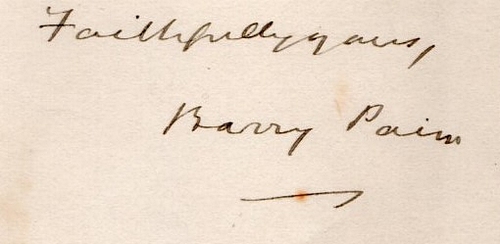 Faithfully yours,
Barry Pain